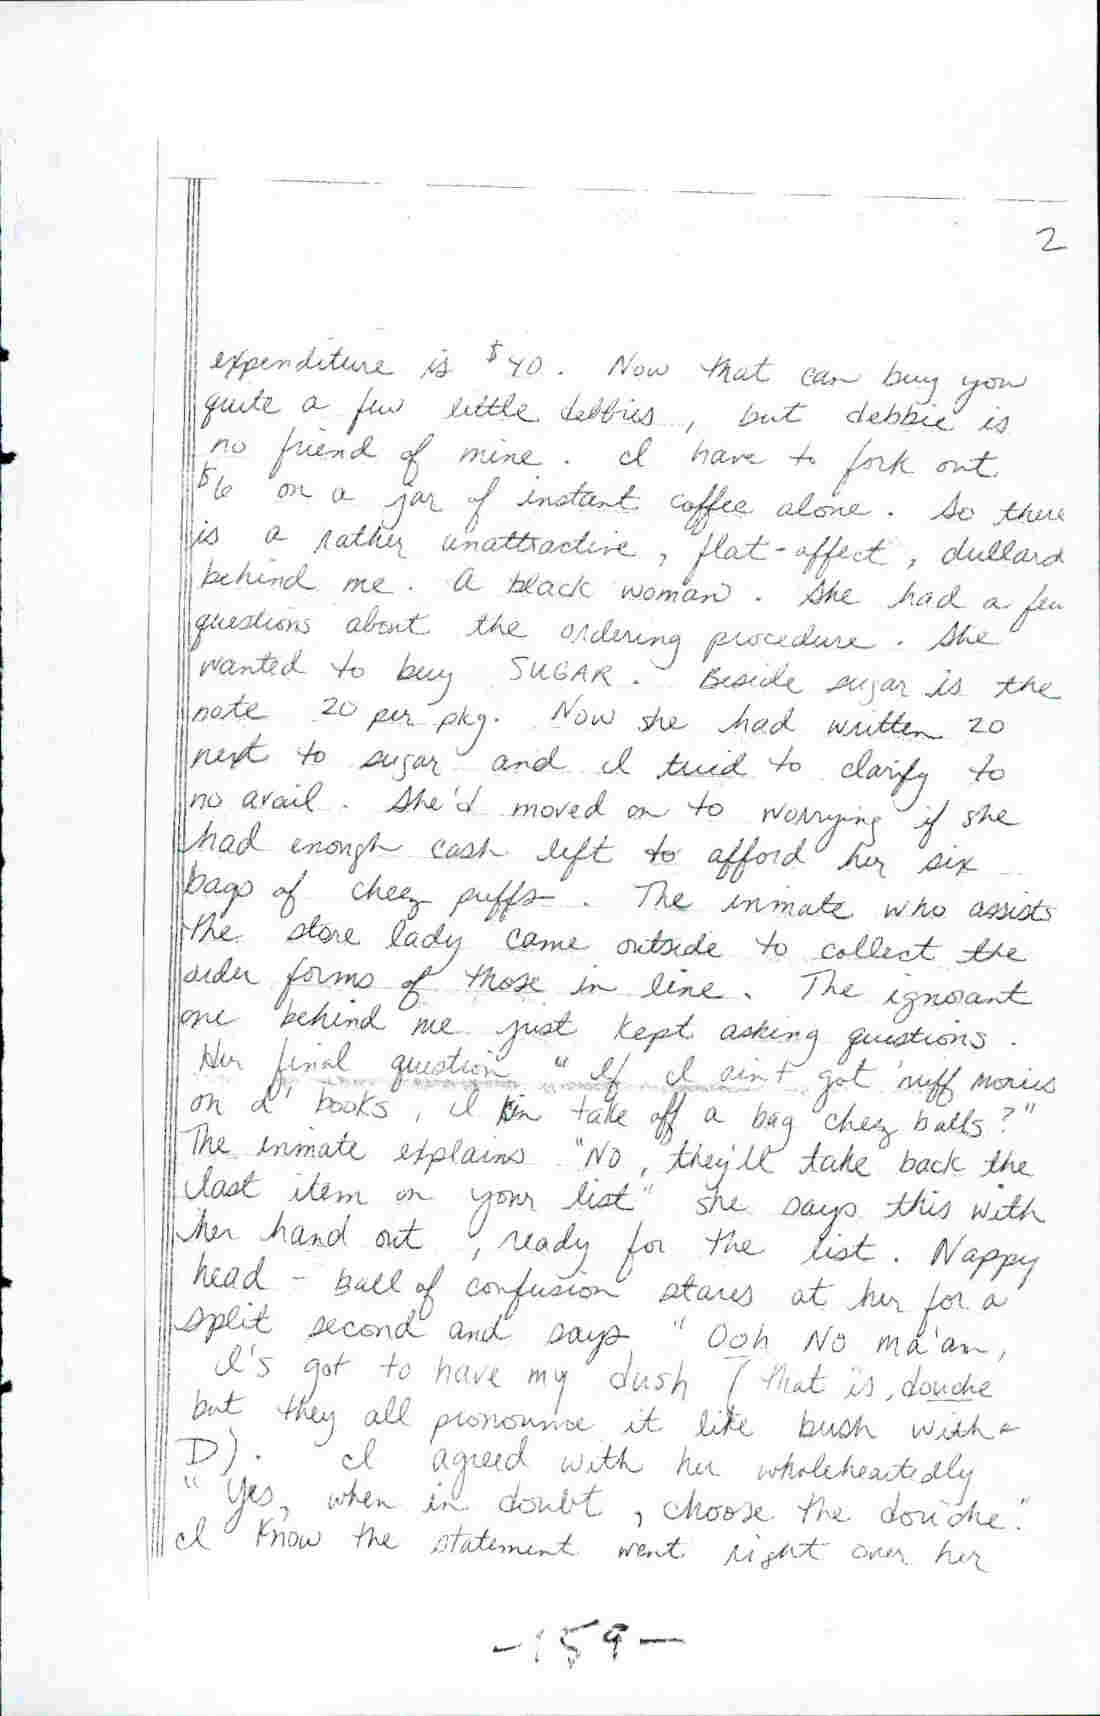 2
expenditure is $40. Now that can buy you
quite a few little debbies, but debbie is
no friend of mine. I have to fork out
$6 on a jar of instant coffee alone. So there
is a rather unattractive, flat-affect, dullard
behind me. A black woman. She had a few
questions about the ordering procedure. She
wanted to buy SUGAR. Beside sugar is the
note 20 per pkg. Now she had written 20
next to sugar and I tried to clarify to
no avail. She'd moved on to worrying if she
had enough cash left to afford her six
bags of cheez puffs. The inmate who assists
the store lady came outside to collect the
order forms of those in line. The ignorant
one behind me just kept asking questions.
Her final question "If I ain't got 'nuff monies
on d' books, I kin take off a bag chez balls?"
The inmate explains "No, they'll take back the
last item on your list" she says this with
her hand out, ready for the list. Nappy
head - ball of confusion stares at her for a
split second and says "Ooh No ma'am,
I's got to have my dush (that is, douche
but they all pronounce it like bush with a
D). I agreed with her wholeheartedly
"Yes, when in doubt, choose the douche."
I know the statement went right over her
-159-